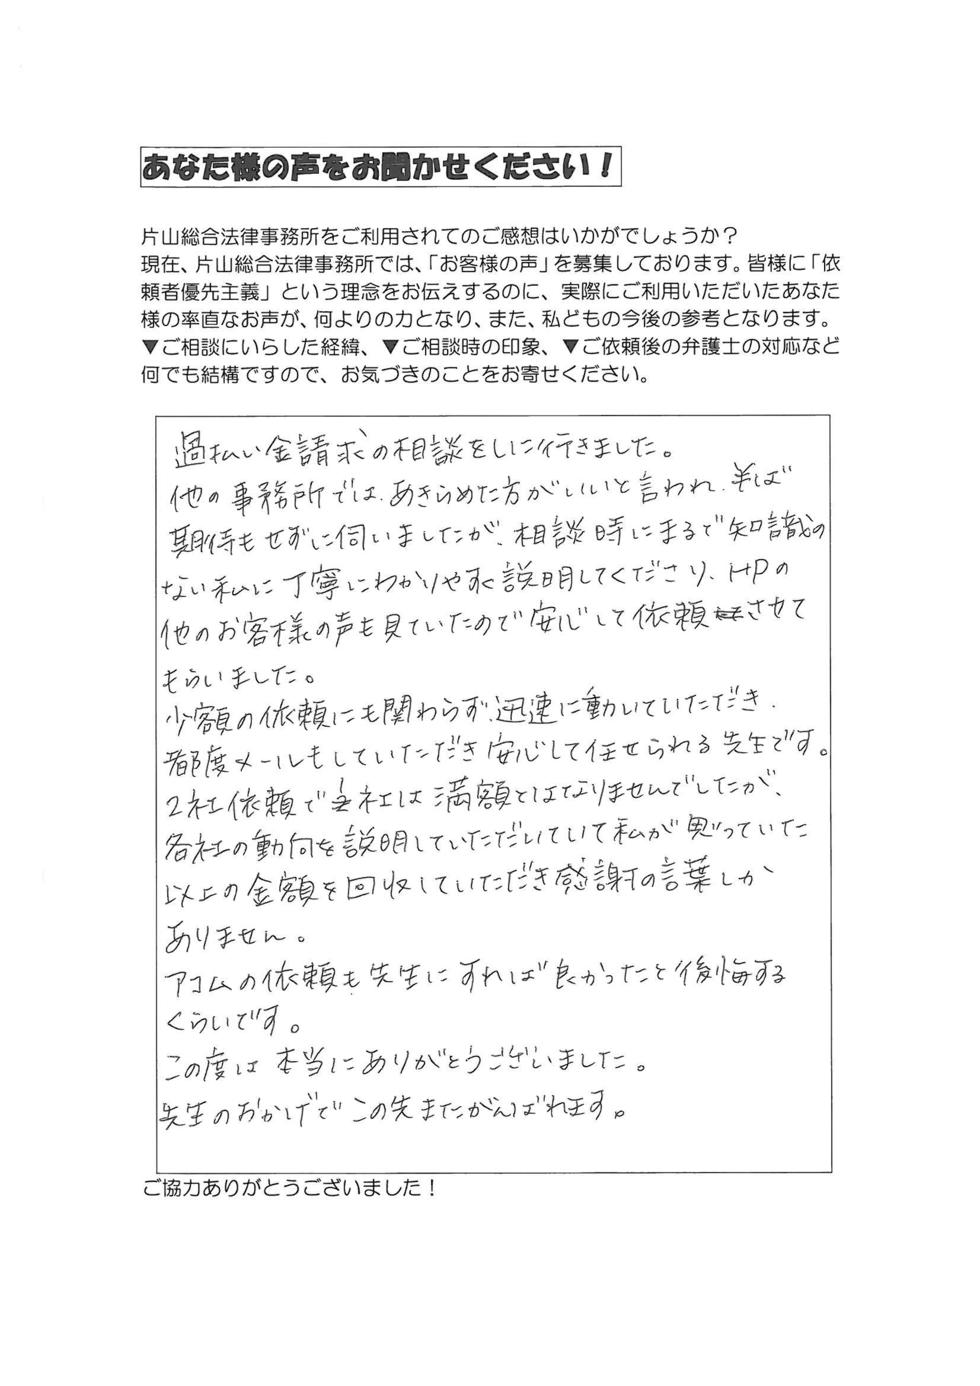 あなた様の声をお聞かせください！
片山総合法律事務所をご利用されてのご感想はいかがでしょうか？
現在、片山総合法律事務所では、「お客様の声」を募集しております。皆様に「依
頼者優先主義」という理念をお伝えするのに、実際にご利用いただいたあなた
様の率直なお声が、何よりの力となり、また、私どもの今後の参考となります。
▼ご相談にいらした経緯、▼ご相談時の印象、▼ご依頼後の弁護士の対応など
何でも結構ですので、お気づきのことをお寄せください。
過払い金請求の相談をしに行きました。
他の事務所では、あきらめた方がいいと言われ、半ば
期待もせずに伺いましたが、相談時にまるで知識の
ない私に丁寧にわかりやすく説明してくださり、HPの
他のお客様の声も見ていたので安心して依頼させて
もらいました。
少額の依頼にも関わらず、迅速に動いていただき、
都度メールもしていただき安心して任せられる先生です。
2社依頼で1社は満額とはなりませんでしたが、
各社の動向を説明していただいていて私が思っていた
以上の金額を回収していただき感謝の言葉しか
ありません。
アコムの依頼も先生にすれば良かったと後悔する
くらいです。
この度は本当にありがとうございました。
先生のおかげでこの先またがんばれます。
ご協力ありがとうございました！